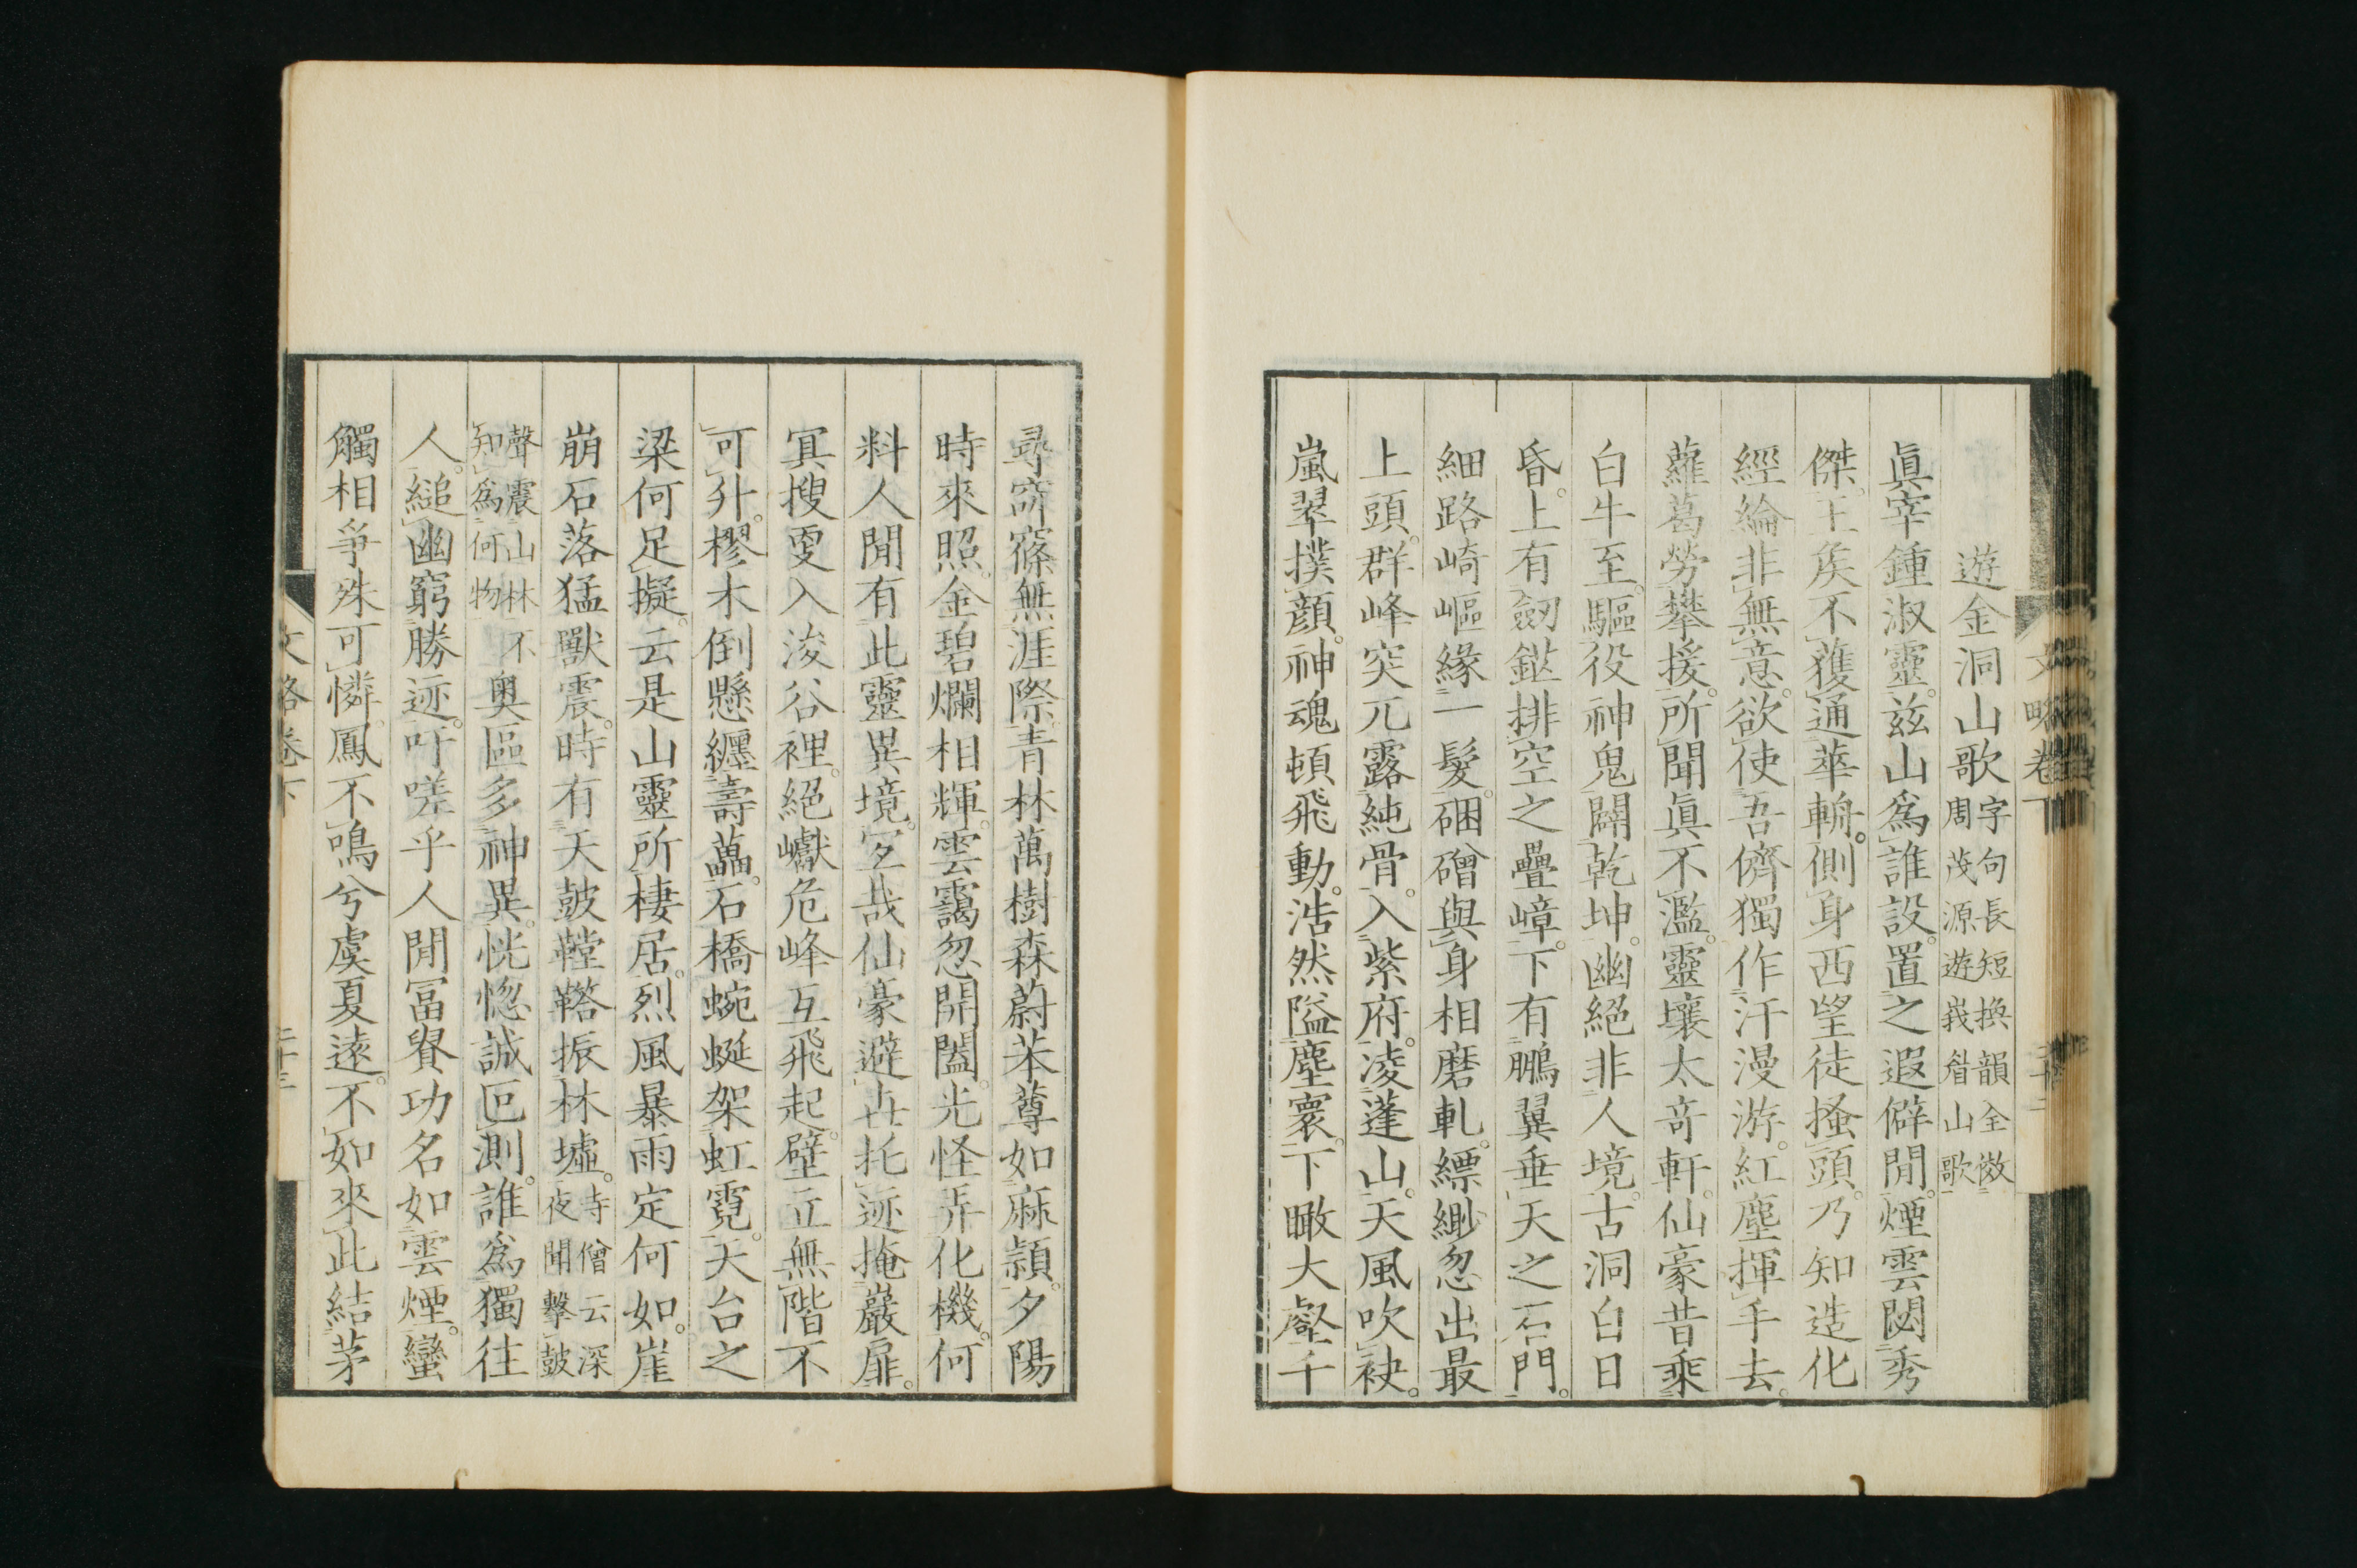 遊金洞山歌字句長短換韻全倣周茂源遊峩眉山歌
眞宰鍾淑靈。茲山爲誰設。置之遐僻閒。煙雲閟秀
傑。王矦不獲通華輈。側身西望徒掻頭。乃知造化
經綸非無意。欲使吾儕獨作汗漫游。紅塵揮手去。
蘿葛勞攀援。所聞眞不濫。靈壤太奇軒。仙豪昔乘
白牛至。驅役神鬼闢乾坤。幽絕非人境。古洞白日
昏。上有劒鎹排空之疊嶂。下有鵬翼垂天之石門。
細路崎嶇緣一髮。硱磳與身相磨軋。縹緲忽出最
上頭。群峰突兀露純骨。入紫府。凌蓬山。天風吹袂。
嵐翠撲顔。神魂頓飛動。浩然隘塵寰。下瞰大壑千
尋窅窱無涯際。青林萬樹森蔚苯䔿如麻頴。夕陽
時來照。金碧爛相輝。雲靄忽開闔。光怪弄化機。何
料人閒有此靈異境。宜哉仙豪避世托迹掩巖扉。
冥搜更入浚谷裡。絕巘危峰互飛起。壁立無階不
可升。樛木倒懸纏壽藟。石橋蜿蜒架虹霓。天台之
梁何足擬。云是山靈所棲居。烈風暴雨定何如。崖
崩石落猛獸震。時有天鼓鞺鞳振林墟。寺僧云深夜聞擊鼓
聲震山林不知爲何物奥區多神異。恍惚誠叵測。誰爲獨往
人。縋幽窮勝迹。吁嗟乎人閒冨貴功名如雲煙。蠻
觸相爭殊可憐。鳳不鳴兮虞夏遠。不如來此結茅
文略卷下
文略卷下